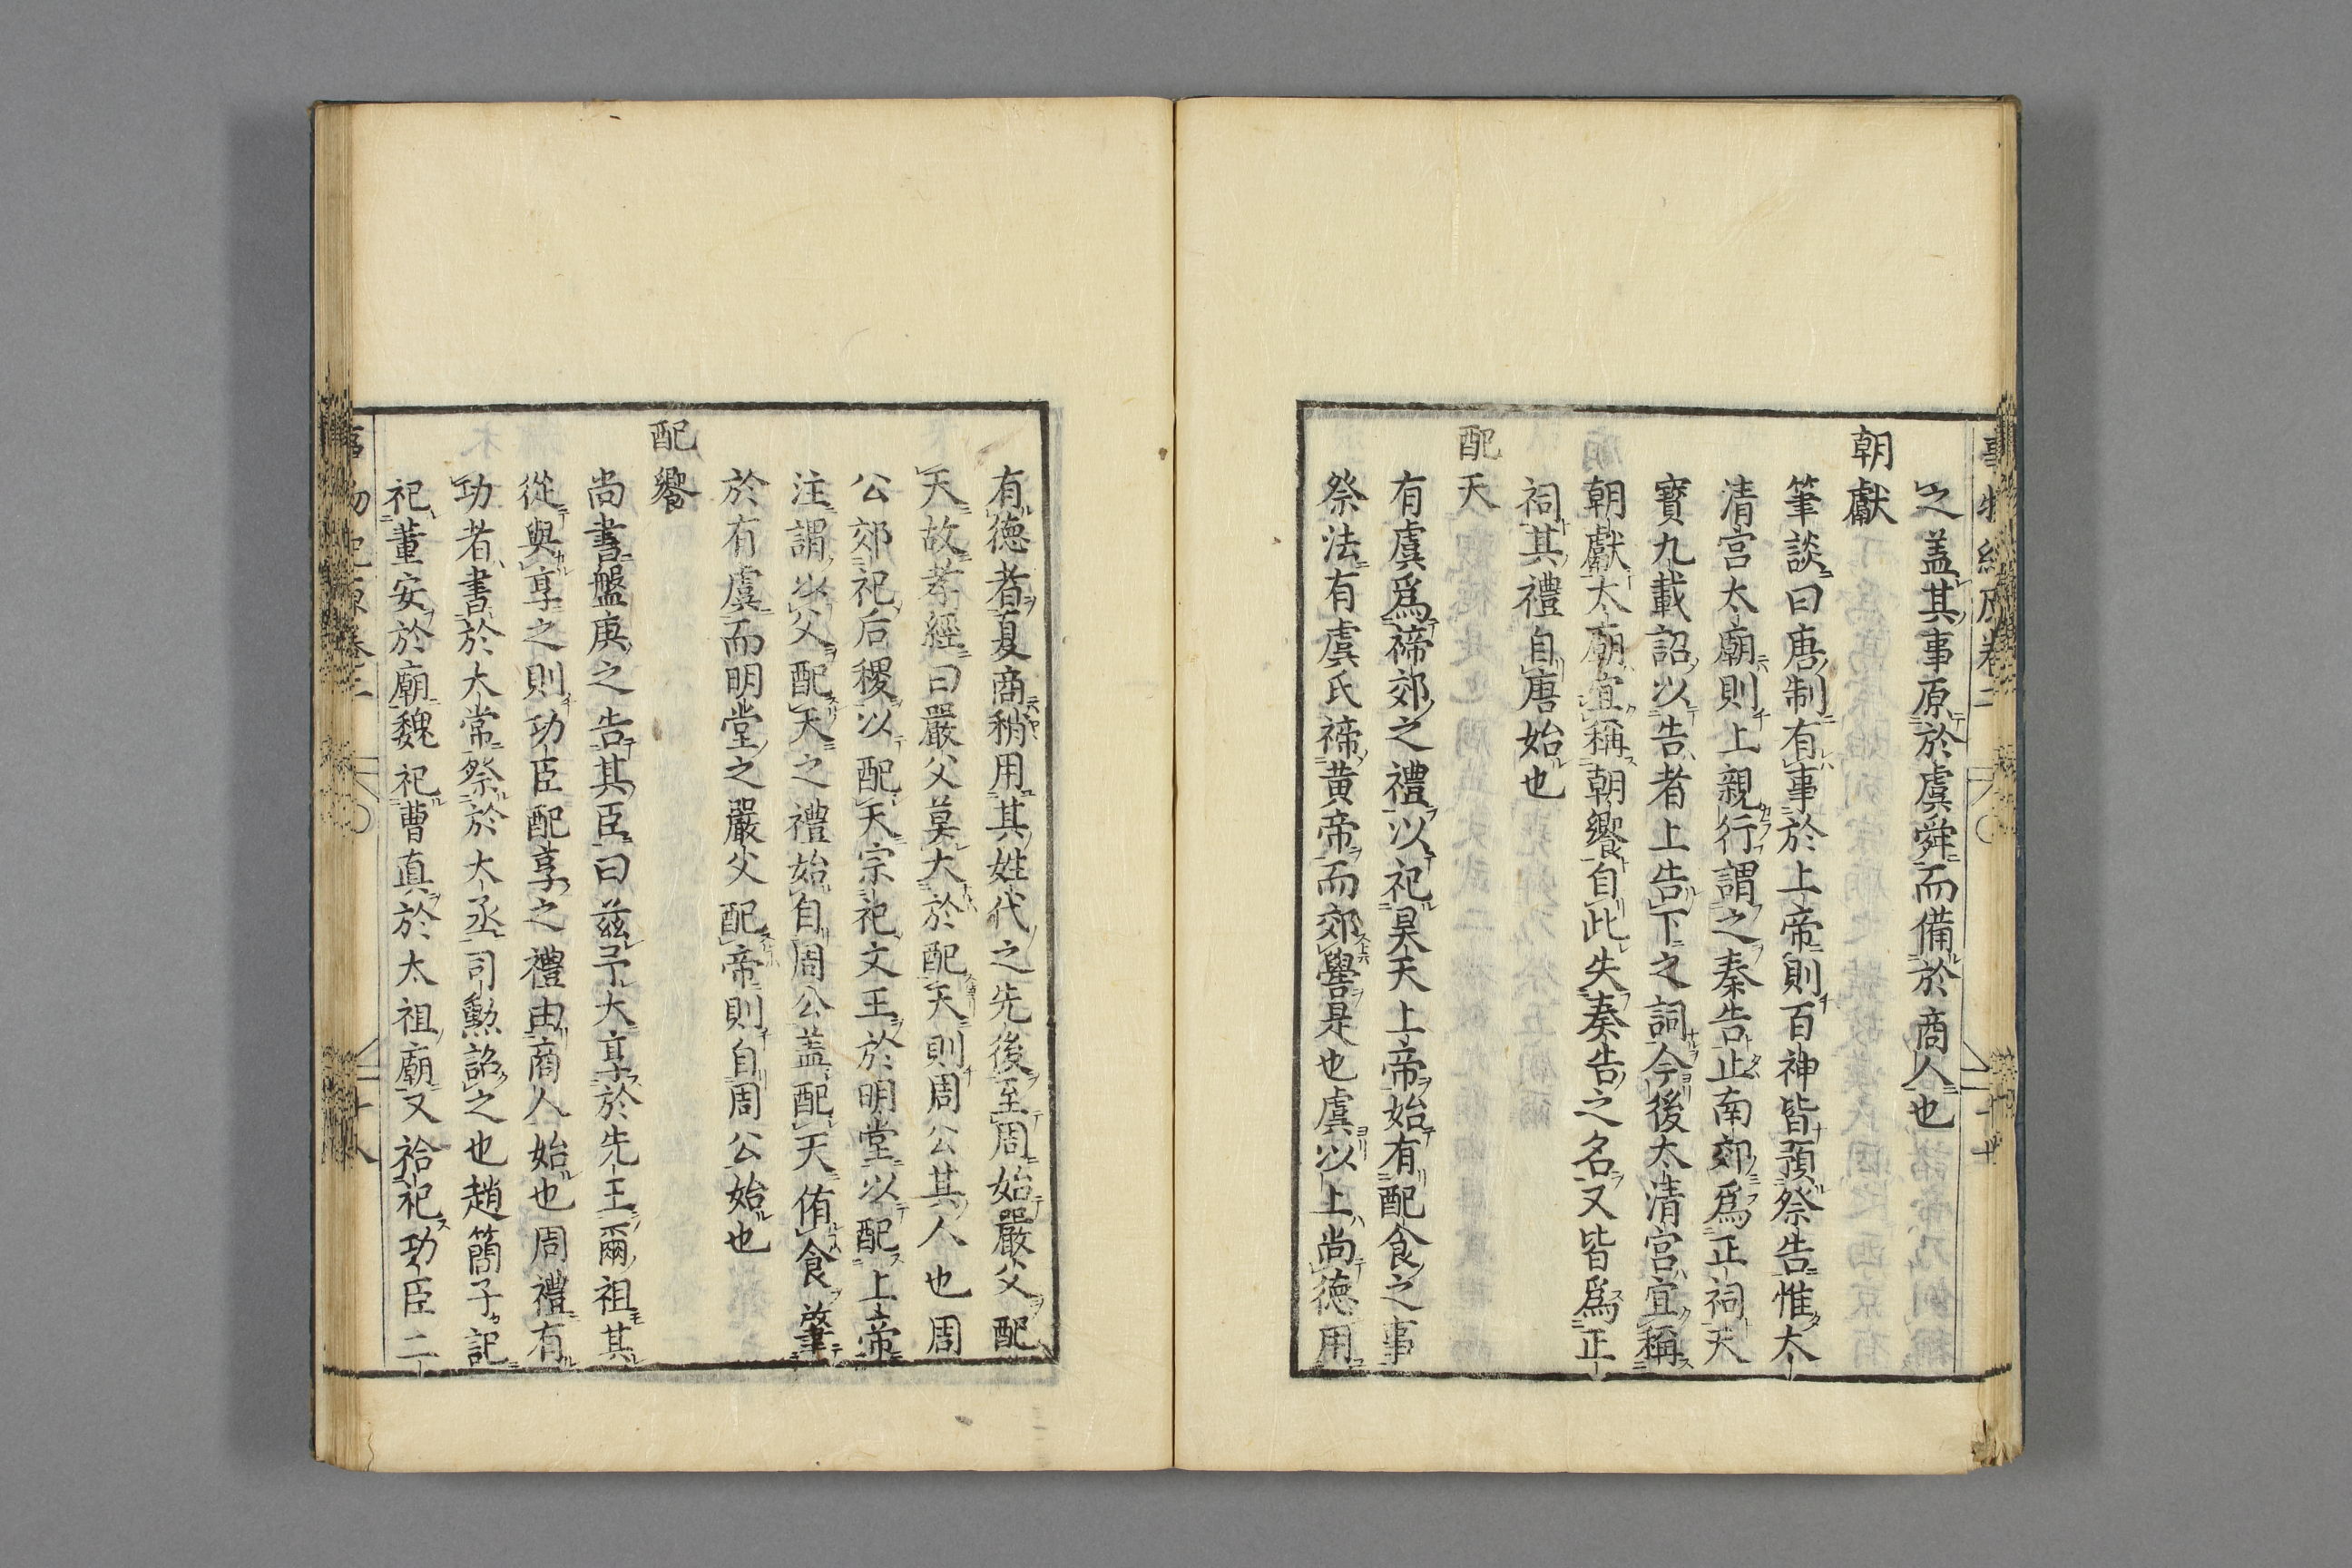 之盖其事原於虞舜而備於商人也
朝獻
筆談曰唐制有事於上帝則百神皆預祭告惟太
清宮太廟則上親行謂之奏告止南郊爲正祠天
寳九載詔以告者上告下之詞今後太清宮宜稱
朝獻太廟宜稱朝饗自此失奏告之名又皆爲正
祠其禮自唐始也
配天
有虞爲禘郊之禮以祀昊天上帝始有配食之事
祭法有虞氏禘黄帝而郊嚳是也虞以上尚德用
有德者夏商稍用其姓代之先後至周始嚴父配
天故孝經曰嚴父莫大於配天則周公其人也周
公郊祀后稷以配天宗祀文王於明堂以配上帝
注謂以父配天之禮始自周公盖配天侑食肇
於有虞而明堂之嚴父配帝則自周公始也
配饗
尚書盤庚之告其臣曰兹予大享於先王爾祖其
從與享之則功臣配享之禮由商人始也周禮有
功者書於大常祭於大丞司勲詔之也趙簡子記
祀董安於廟魏祀曹真於太祖廟又祫祀功臣二